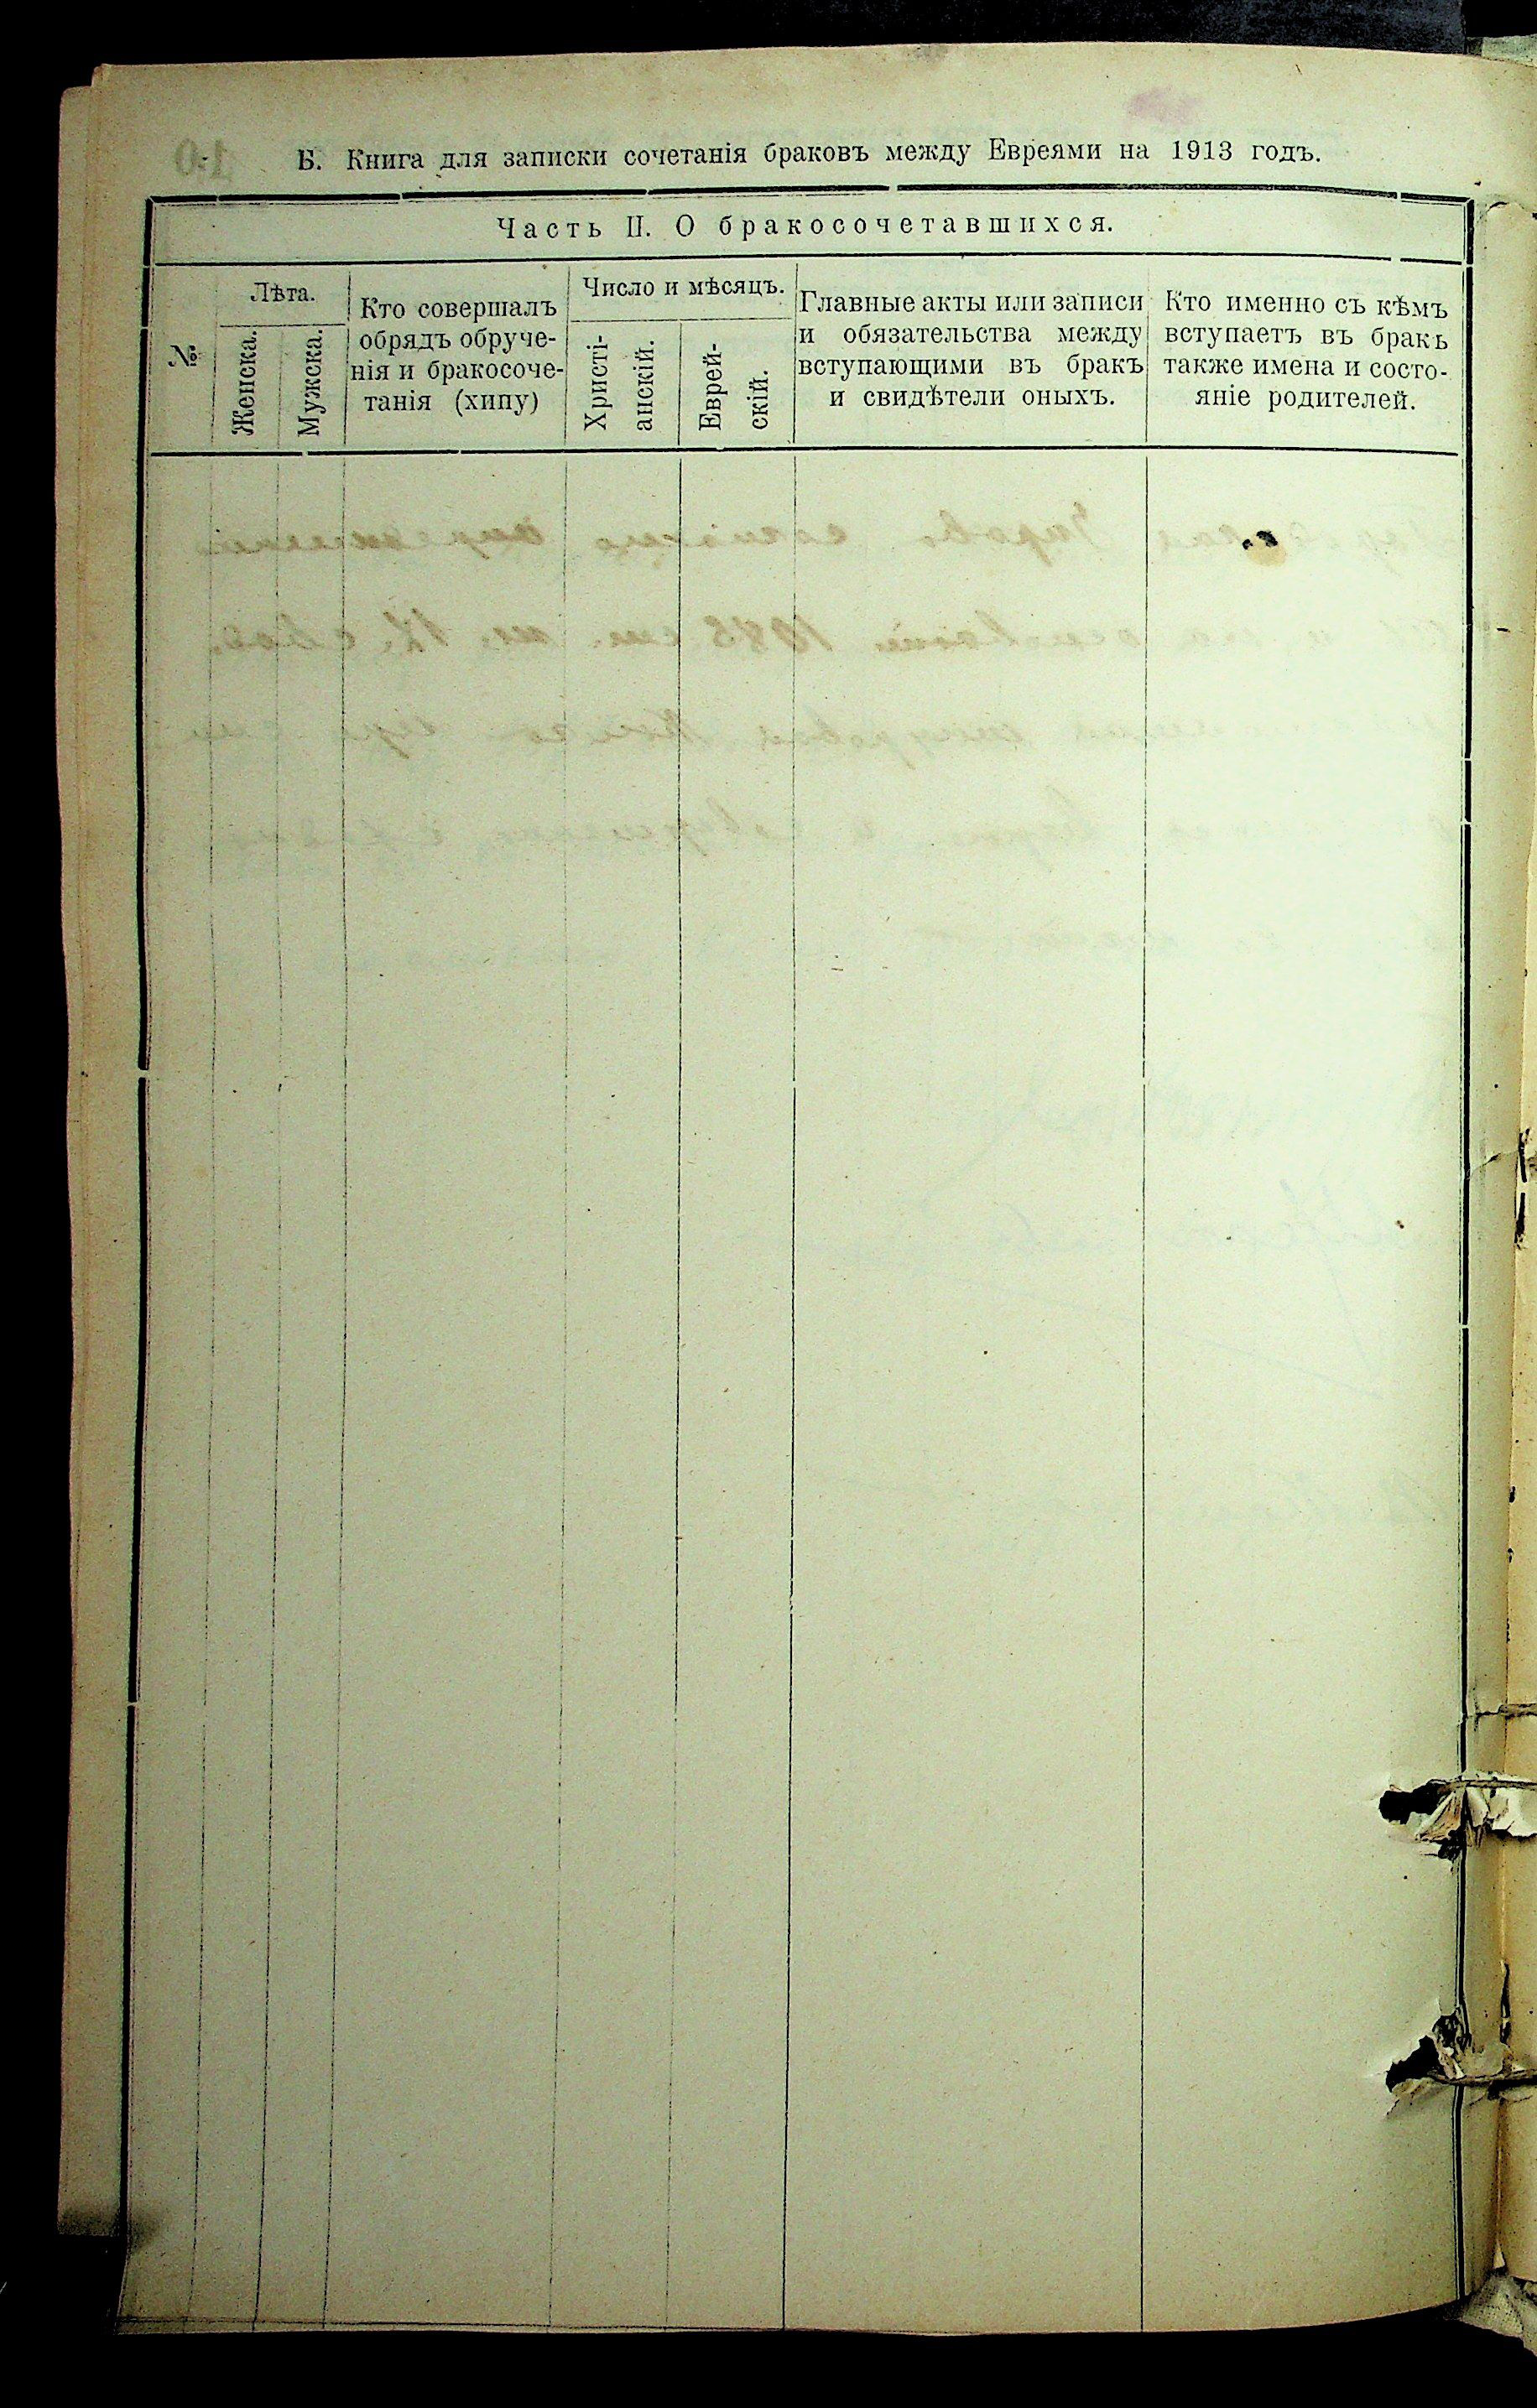 Б. Книга для записки сочетанія браковъ между Евреями на 1913 годъ.
Часть II. О бракосочетавшихся.
№
Лѣта.
Женска.
Мужска.
Кто совершалъ
обрядъ обруче-
нія и бракосоче-
танія (хипу)
Число и мѣсяцъ.
Христі-
анскій.
Еврей-
скій.
Главные акты или записи
и обязательства между
вступающими въ бракъ
и свидѣтели оныхъ.
Кто именно съ кѣмъ
вступаетъ въ бракъ
также имена и состо-
яніе родителей.